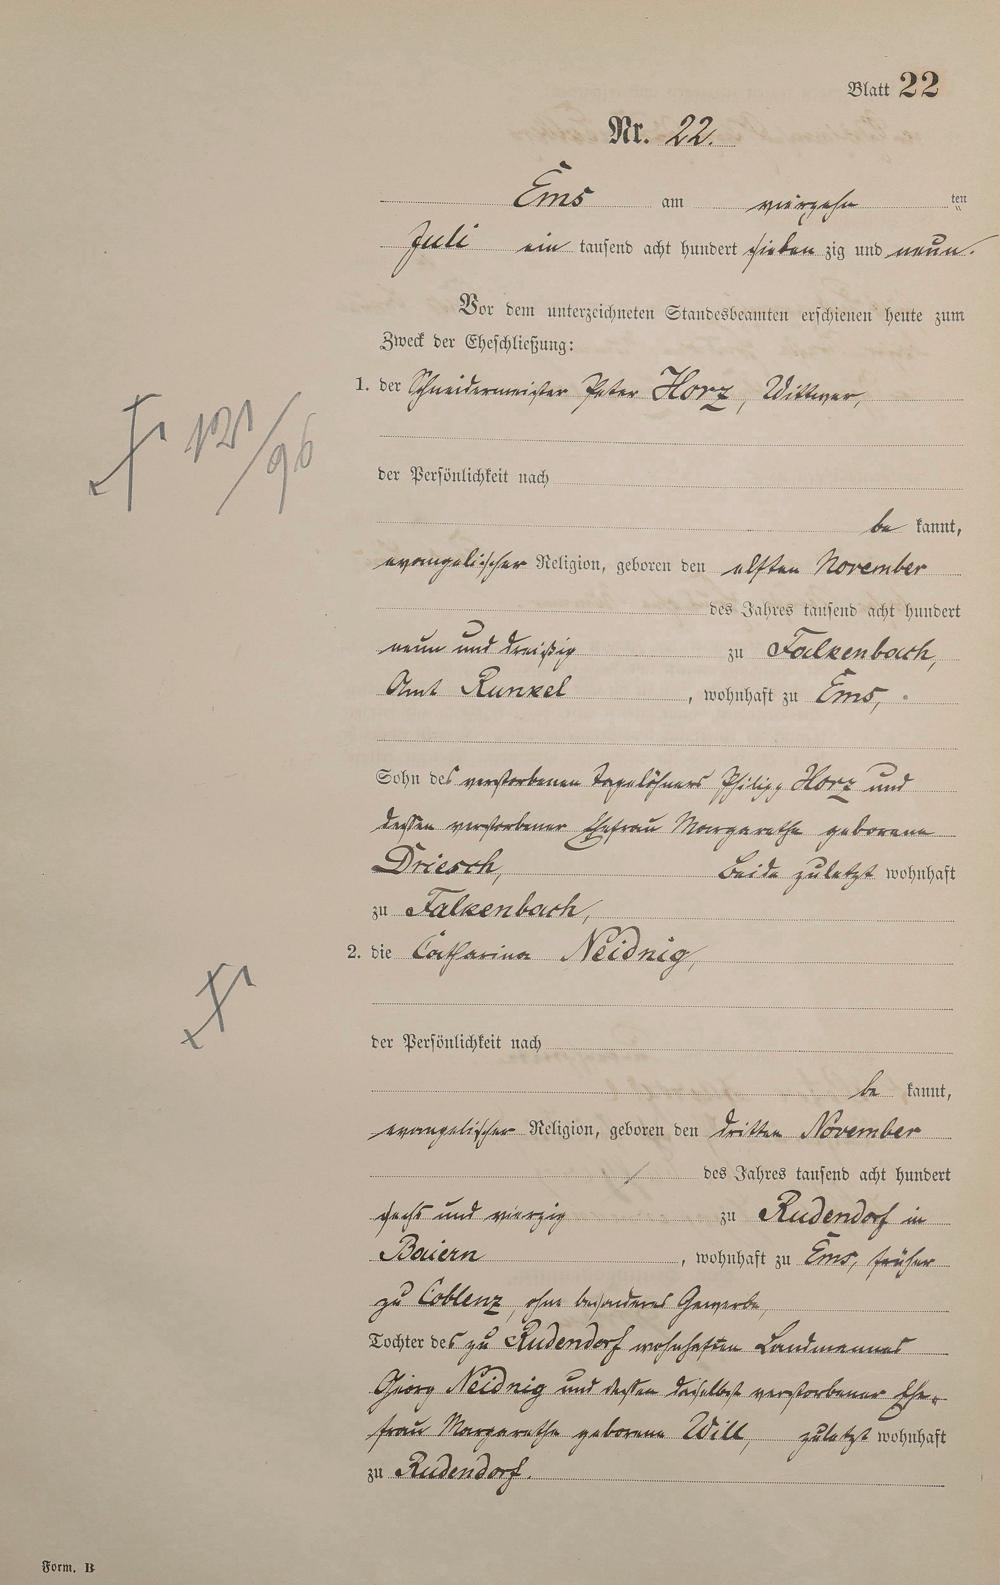 Blatt 22
Nr. 22.
Ems am vierzehn ten
Juli ein tausend acht hundert sieben zig und neun.
Vor dem unterzeichneten Standesbeamten erschienen heute zum
Zweck der Eheschließung:
1. der Schneidermeister Peter Horz, Wittwer,
121/96
der Persönlichkeit nach
be kannt,
evangelischer Religion, geboren den elften November
des Jahres tausend acht hundert
neun und dreißig zu Falkenbach,
Amt Runkel, wohnhaft zu Ems,
Sohn des verstorbenen Tagelöhners Philipp Horz und
dessen verstorbener Ehefrau Margarethe geborene
Driesch, Beide zuletzt wohnhaft
zu Falkenbach,
2. die Catharina Neidnig,
der Persönlichkeit nach
be kannt,
evangelischer Religion, geboren den dritten November
des Jahres tausend acht hundert
sechs und vierzig zu Rudendorf in
Baiern, wohnhaft zu Ems, früher
zu Coblenz, ohne besonderes Gewerbe,
Tochter des zu Rudendorf wohnhaften Landmannes
Georg Neidnig und dessen daselbst verstorbener Ehe-
frau Margarethe geborene Will, zuletzt wohnhaft
zu Rudendorf.
Form. B